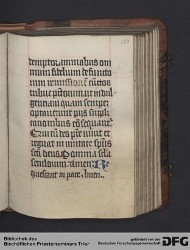 demptor animabus om
nium fidelium defuncto
rum remissionem cunctorum
tribue peccatorum ut indul
gentiam quam semper
optaverunt piis suppli
cationibus consequantur
Qui cum deo patre vivit et
regnat in unitate spiritus
sancti deus Per omnia secula
seculorum Amen
Requiescant in pace Amen
Bibliothek des
Bischöflichen Priesterseminars Trier
gefördert von der
Deutschen Forschungsgemeinschaft
DFG